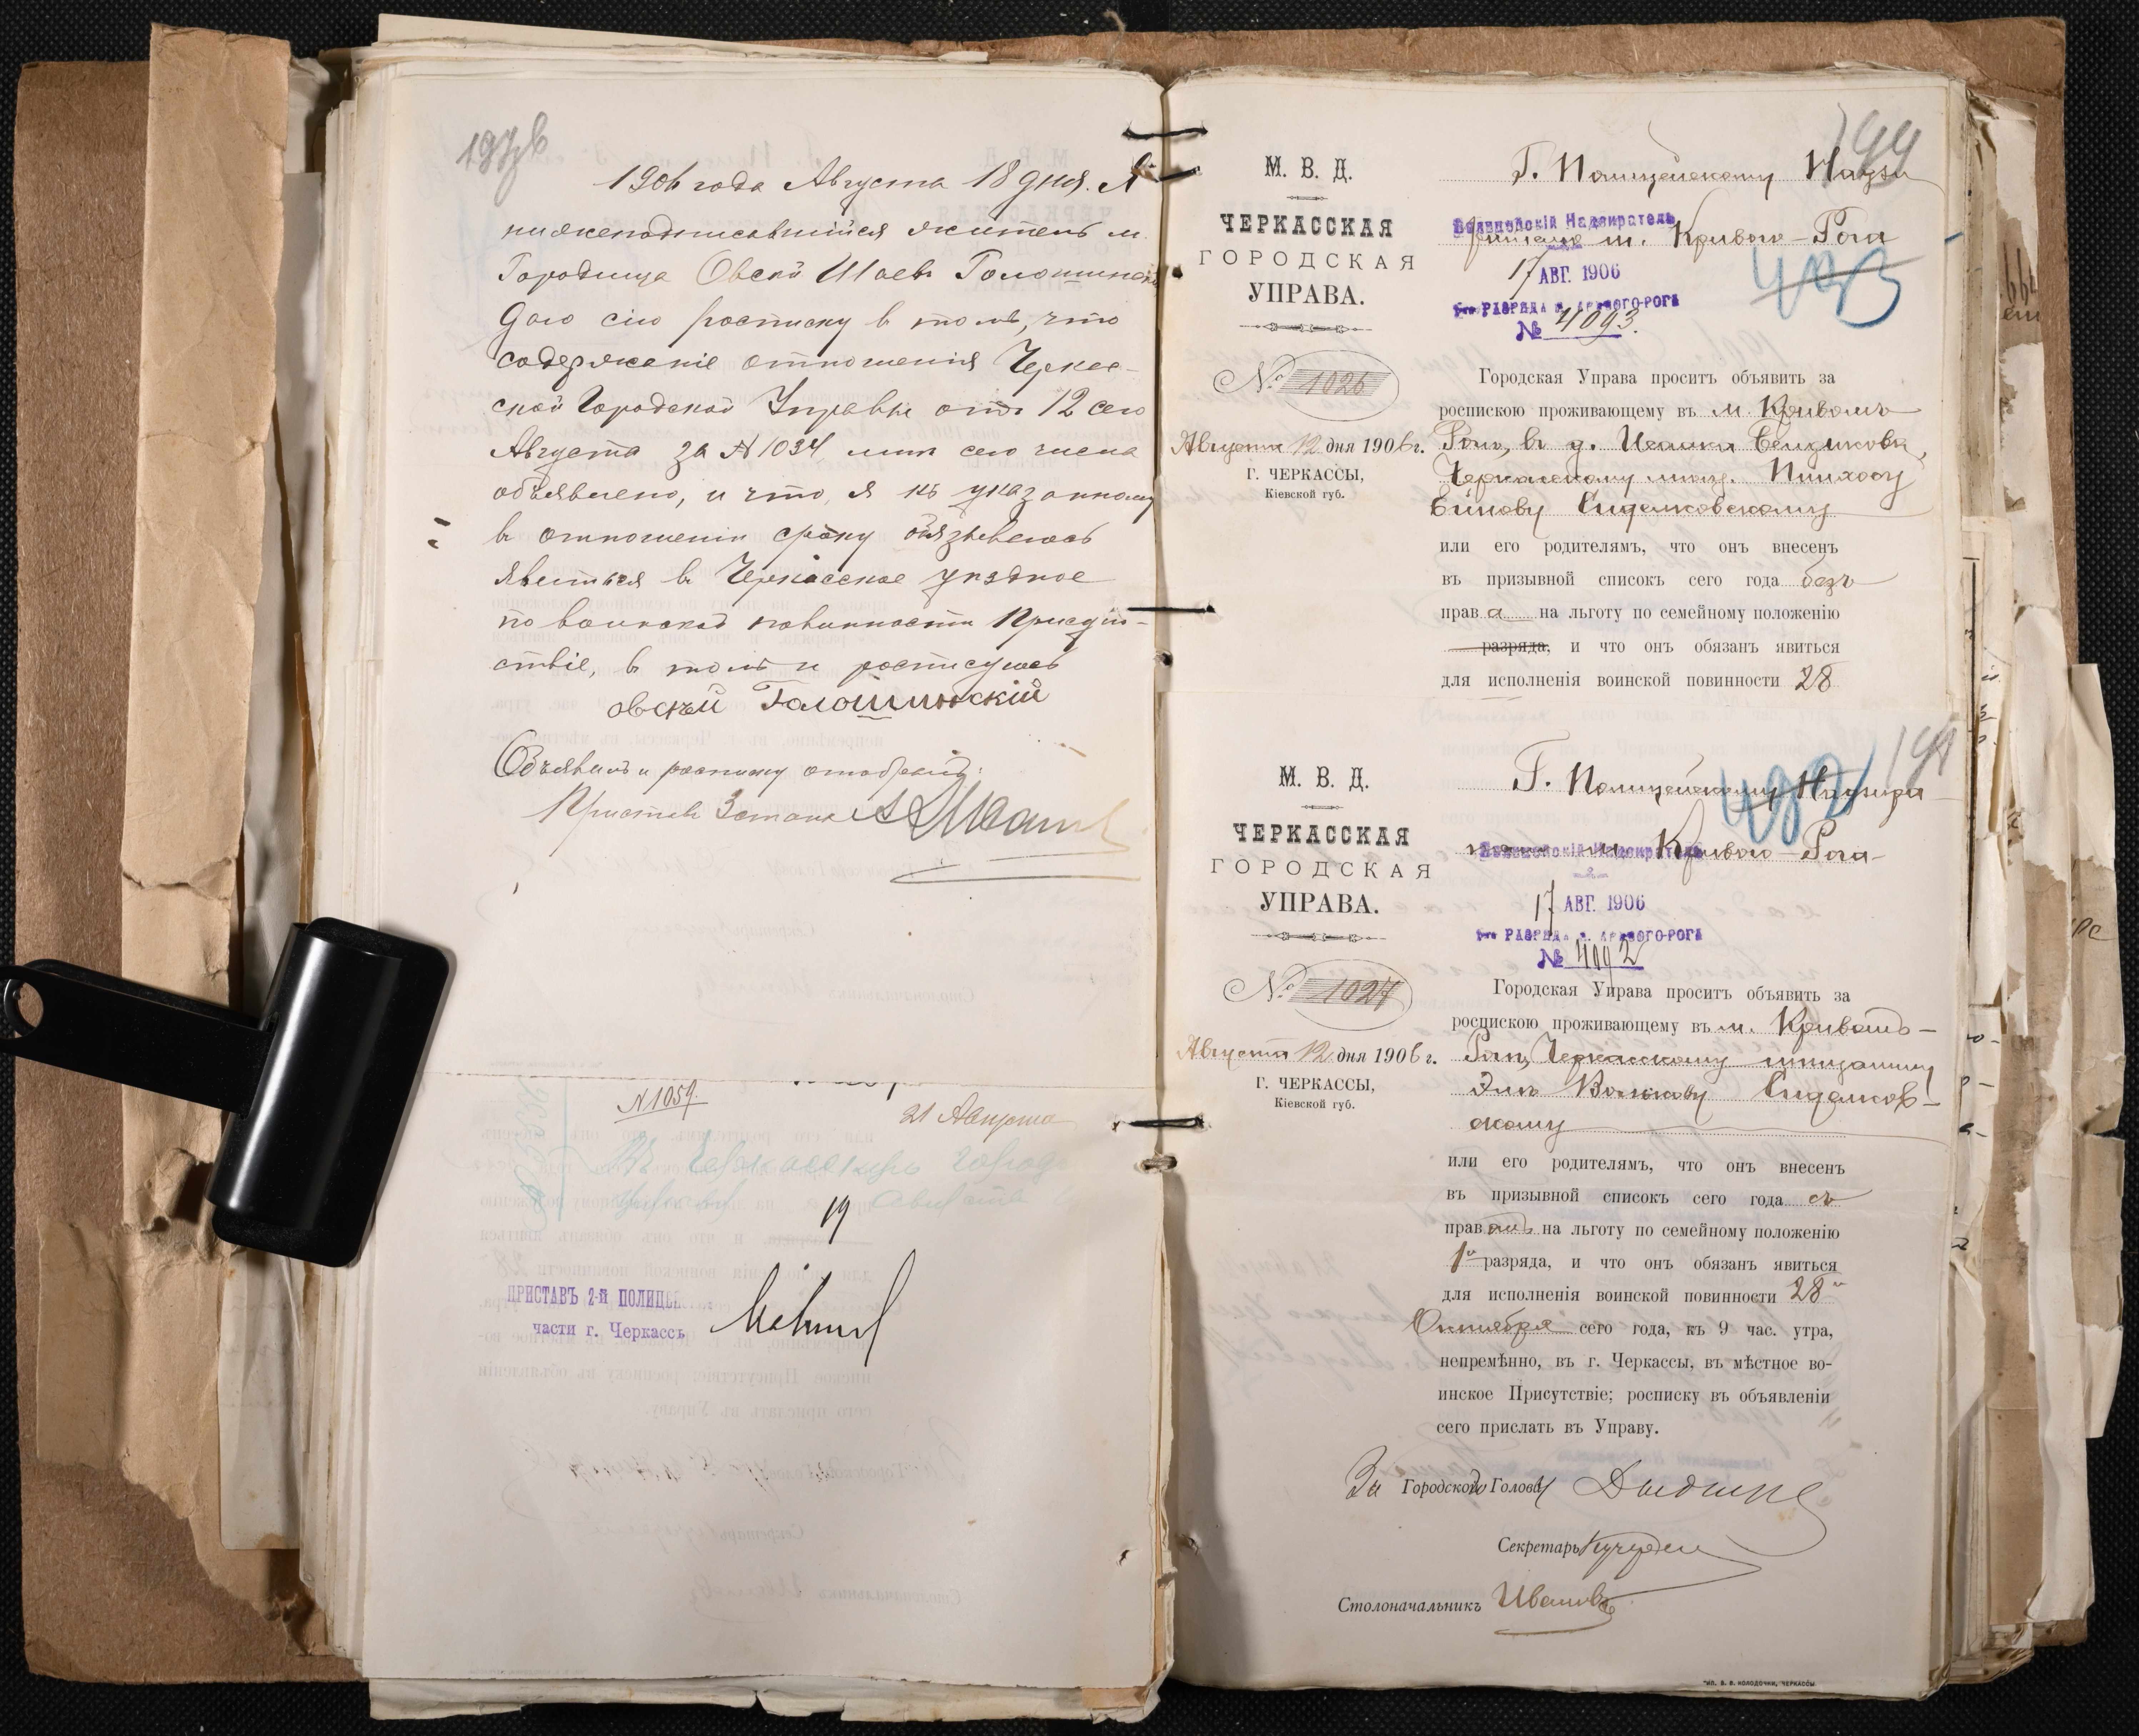 1906 года Августа 18 дня. Я
нижеподписавшійся житель м.
Городища Овсей Шаевъ Голошинскій
даю сію росписку в томъ, что
содержаніе отношенія Черкас-
ской Городской Управы отъ 12 сего
Августа за № 1034 мнѣ сего числа
объявлено, и что я къ указанному
в отношеніи сроку обязываюсь
явиться в Черкасское уѣздное
по воинской повинности Присут-
ствіе, в томъ и росписуюсь
овсѣй Голошинскій
Объявилъ и росписку отобралъ:
Приставъ 3 стана
№ 1059.
21 Августа
Въ Черкасскую город
Управу Августа
19
ПРИСТАВЪ 2-й ПОЛИЦЕ
части г. Черкассъ
М. В. Д.
ЧЕРКАССКАЯ
ГОРОДСКАЯ
УПРАВА.
№ 1026
Августа 12 дня 1906 г.
Г. ЧЕРКАССЫ,
Кіевской губ.
Г. Полицейскому Надзи
рателю м. Кривого-Рога
Полицейскій Надзиратель
17 АВГ. 1906
РАЗРЯДА м. КРИВОГО-РОГА
№ 4093.
4093
Городская Управа проситъ объявить за
роспискою проживающему въ м. Кривомъ
Рогѣ, въ д.
Черкасскому мѣщ. Пинхосу
Сидельковскому
или его родителямъ, что онъ внесенъ
въ призывной списокъ сего года безъ
права на льготу по семейному положенію
разряда, и что онъ обязанъ явиться
для исполненія воинской повинности 28
М. В. Д.
ЧЕРКАССКАЯ
ГОРОДСКАЯ
УПРАВА.
№ 1027
Августа 12 дня 1906 г.
Г. ЧЕРКАССЫ,
Кіевской губ.
Г. Полицейскому Надзира
телю м. Кривого-Рога
Полицейскій Надзиратель
17 АВГ. 1906
РАЗРЯДА м. КРИВОГО-РОГА
№ 4092
4092
Городская Управа проситъ объявить за
роспискою проживающему въ м. Кривомъ-
Рогѣ, Черкасскому мѣщанину
Сидельков-
скому
или его родителямъ, что онъ внесенъ
въ призывной списокъ сего года съ
правомъ на льготу по семейному положенію
1го разряда, и что онъ обязанъ явиться
для исполненія воинской повинности 28го
Октября сего года, къ 9 час. утра,
непремѣнно, въ г. Черкассы, въ мѣстное во-
инское Присутствіе; росписку въ объявленіи
сего прислать въ Управу.
За Городского Голову
Секретарь
Столоначальникъ Ивановъ